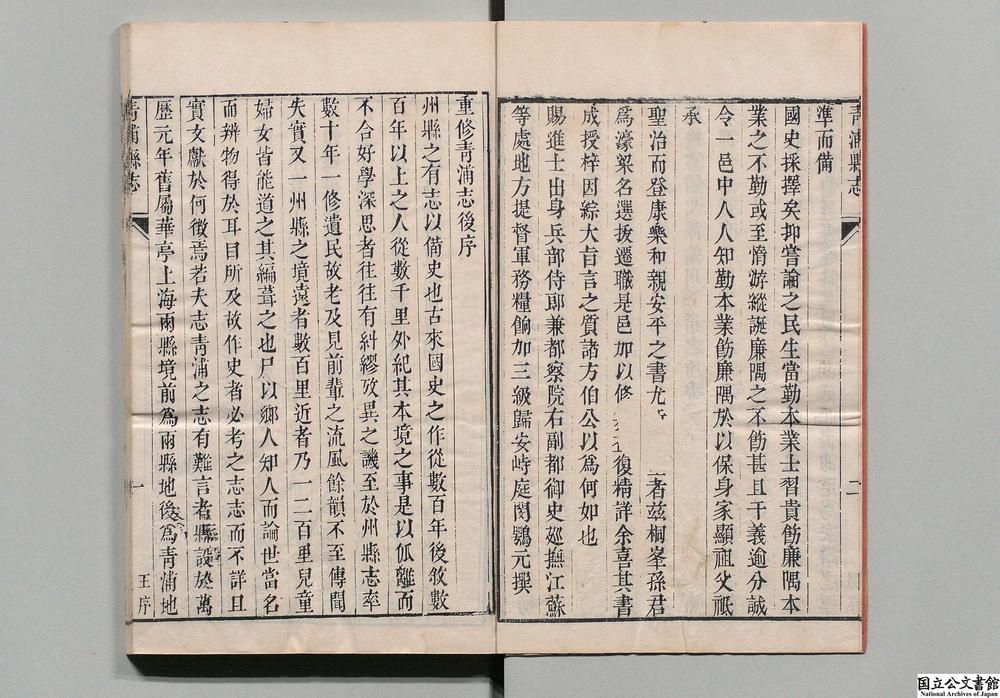 青浦縣志
二
準而備
國史採擇矣抑嘗論之民生當勤本業士習貴飭廉隅本
業之不勤或至惰游縱誕廉隅之不飭甚且干義逾分誠
令一邑中人人知勤本業飭廉隅於以保身家顯祖父祗
承
聖治而登康樂和親安平之書尤 者茲桐峯孫君
爲濠梁名選扳遷職是邑加以修 復精詳余喜其書
成授梓因綜大旨言之質諸方伯公以爲何如也
賜進士出身兵部侍郎兼都察院右副都御史廵撫江蘇
等處地方提督軍務糧餉加三級歸安峙庭閔鶚元撰
重修青浦志後序
州縣之有志以備史也古來國史之作從數百年後敘數
百年以上之人從數千里外紀其本境之事是以仳離而
不合好學深思者往往有糾繆攷異之譏至於州縣志率
數十年一修遺民故老及見前輩之流風餘韻不至傳聞
失實又一州縣之境遠者數百里近者乃一二百里見童
婦女皆能道之其編葺之也尸以鄉人知人而論世當名
而辨物得於耳目所及故作史者必考之志志而不詳且
實文獻於何徵焉若夫志青浦之志有難言者縣設於萬
歷元年舊屬華亭上海兩縣境前爲兩縣地後爲青浦地
青浦縣志
一
王序
国立公文書館
National Archives of Japan